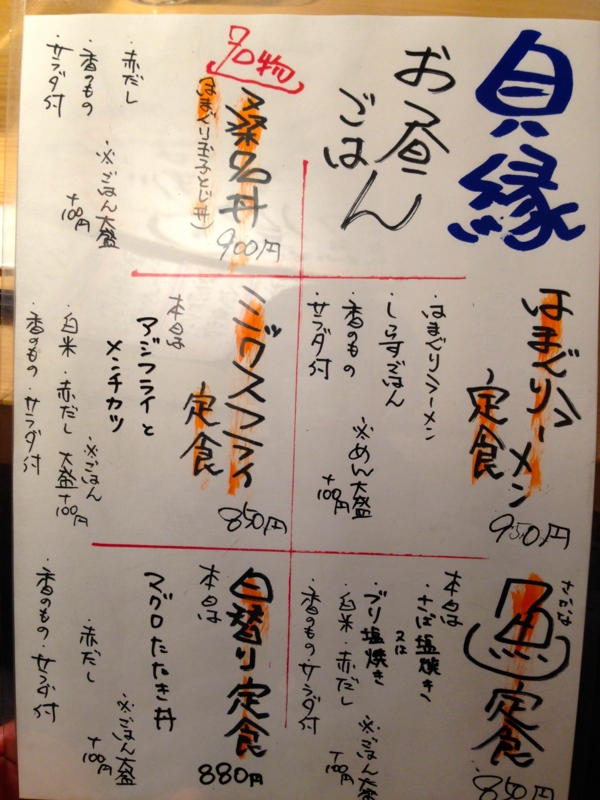 貝縁
お昼
ごはん
名物
桑名丼
(はまぐり玉子とじ丼)
900円
・赤だし
・香のもの
・サラダ付
※ごはん大盛
+100円
はまぐりラーメン
定食
950円
・はまぐりラーメン
・しらすごはん
・香のもの
・サラダ付
※めん大盛
+100円
ミックスフライ
定食
850円
本日は
アジフライと
メンチカツ
・白米・赤だし
・香のもの・サラダ付
※ごはん
大盛+100円
さかな
魚定食
850円
本日は
・さば塩焼き
又は
・ブリ塩焼き
・白米・赤だし
・香のもの・サラダ付
※ごはん大盛
+100円
日替り定食
880円
本日は
マグロたたき丼
・赤だし
・香のもの・サラダ付
※ごはん大盛
+100円